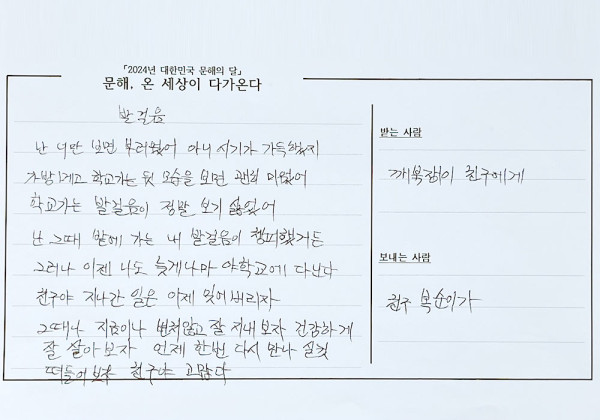 「2024년 대한민국 문해의 달」
문해, 온 세상이 다가온다
발걸음
난 너만 보면 부러웠어 아니 시기가 가득했지
가방 메고 학교가는 뒷 모습을 보면 괜히 미웠어
학교가는 발걸음이 정말 보기 싫었어
난 그때 밭에 가는 내 발걸음이 챙피했거든
그러나 이젠 나도 늦게나마 야학교에 다닌다
친구야 지나간 일은 이제 잊어버리자
그때나 지금이나 변치않고 잘 지내보자 건강하게
잘 살아보자 언제 한번 다시 만나 실컷
떠들어보자 친구야 고맙다
받는 사람
깨복쟁이 친구에게
보내는 사람
친구 복순이가